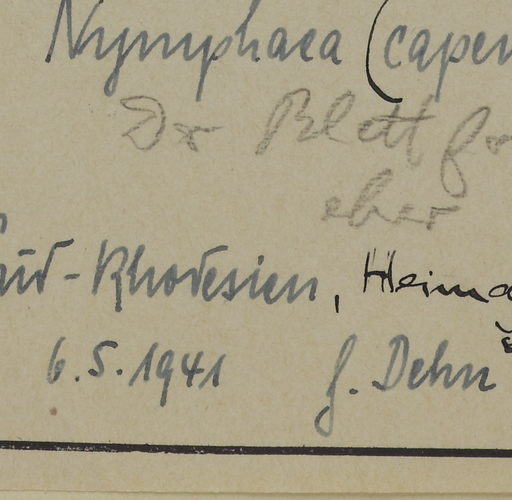 Nymphaea (capen
Dr Blatt fo
eher
üd-Rhodesien, Heima
6.5.1941 G. Dehn